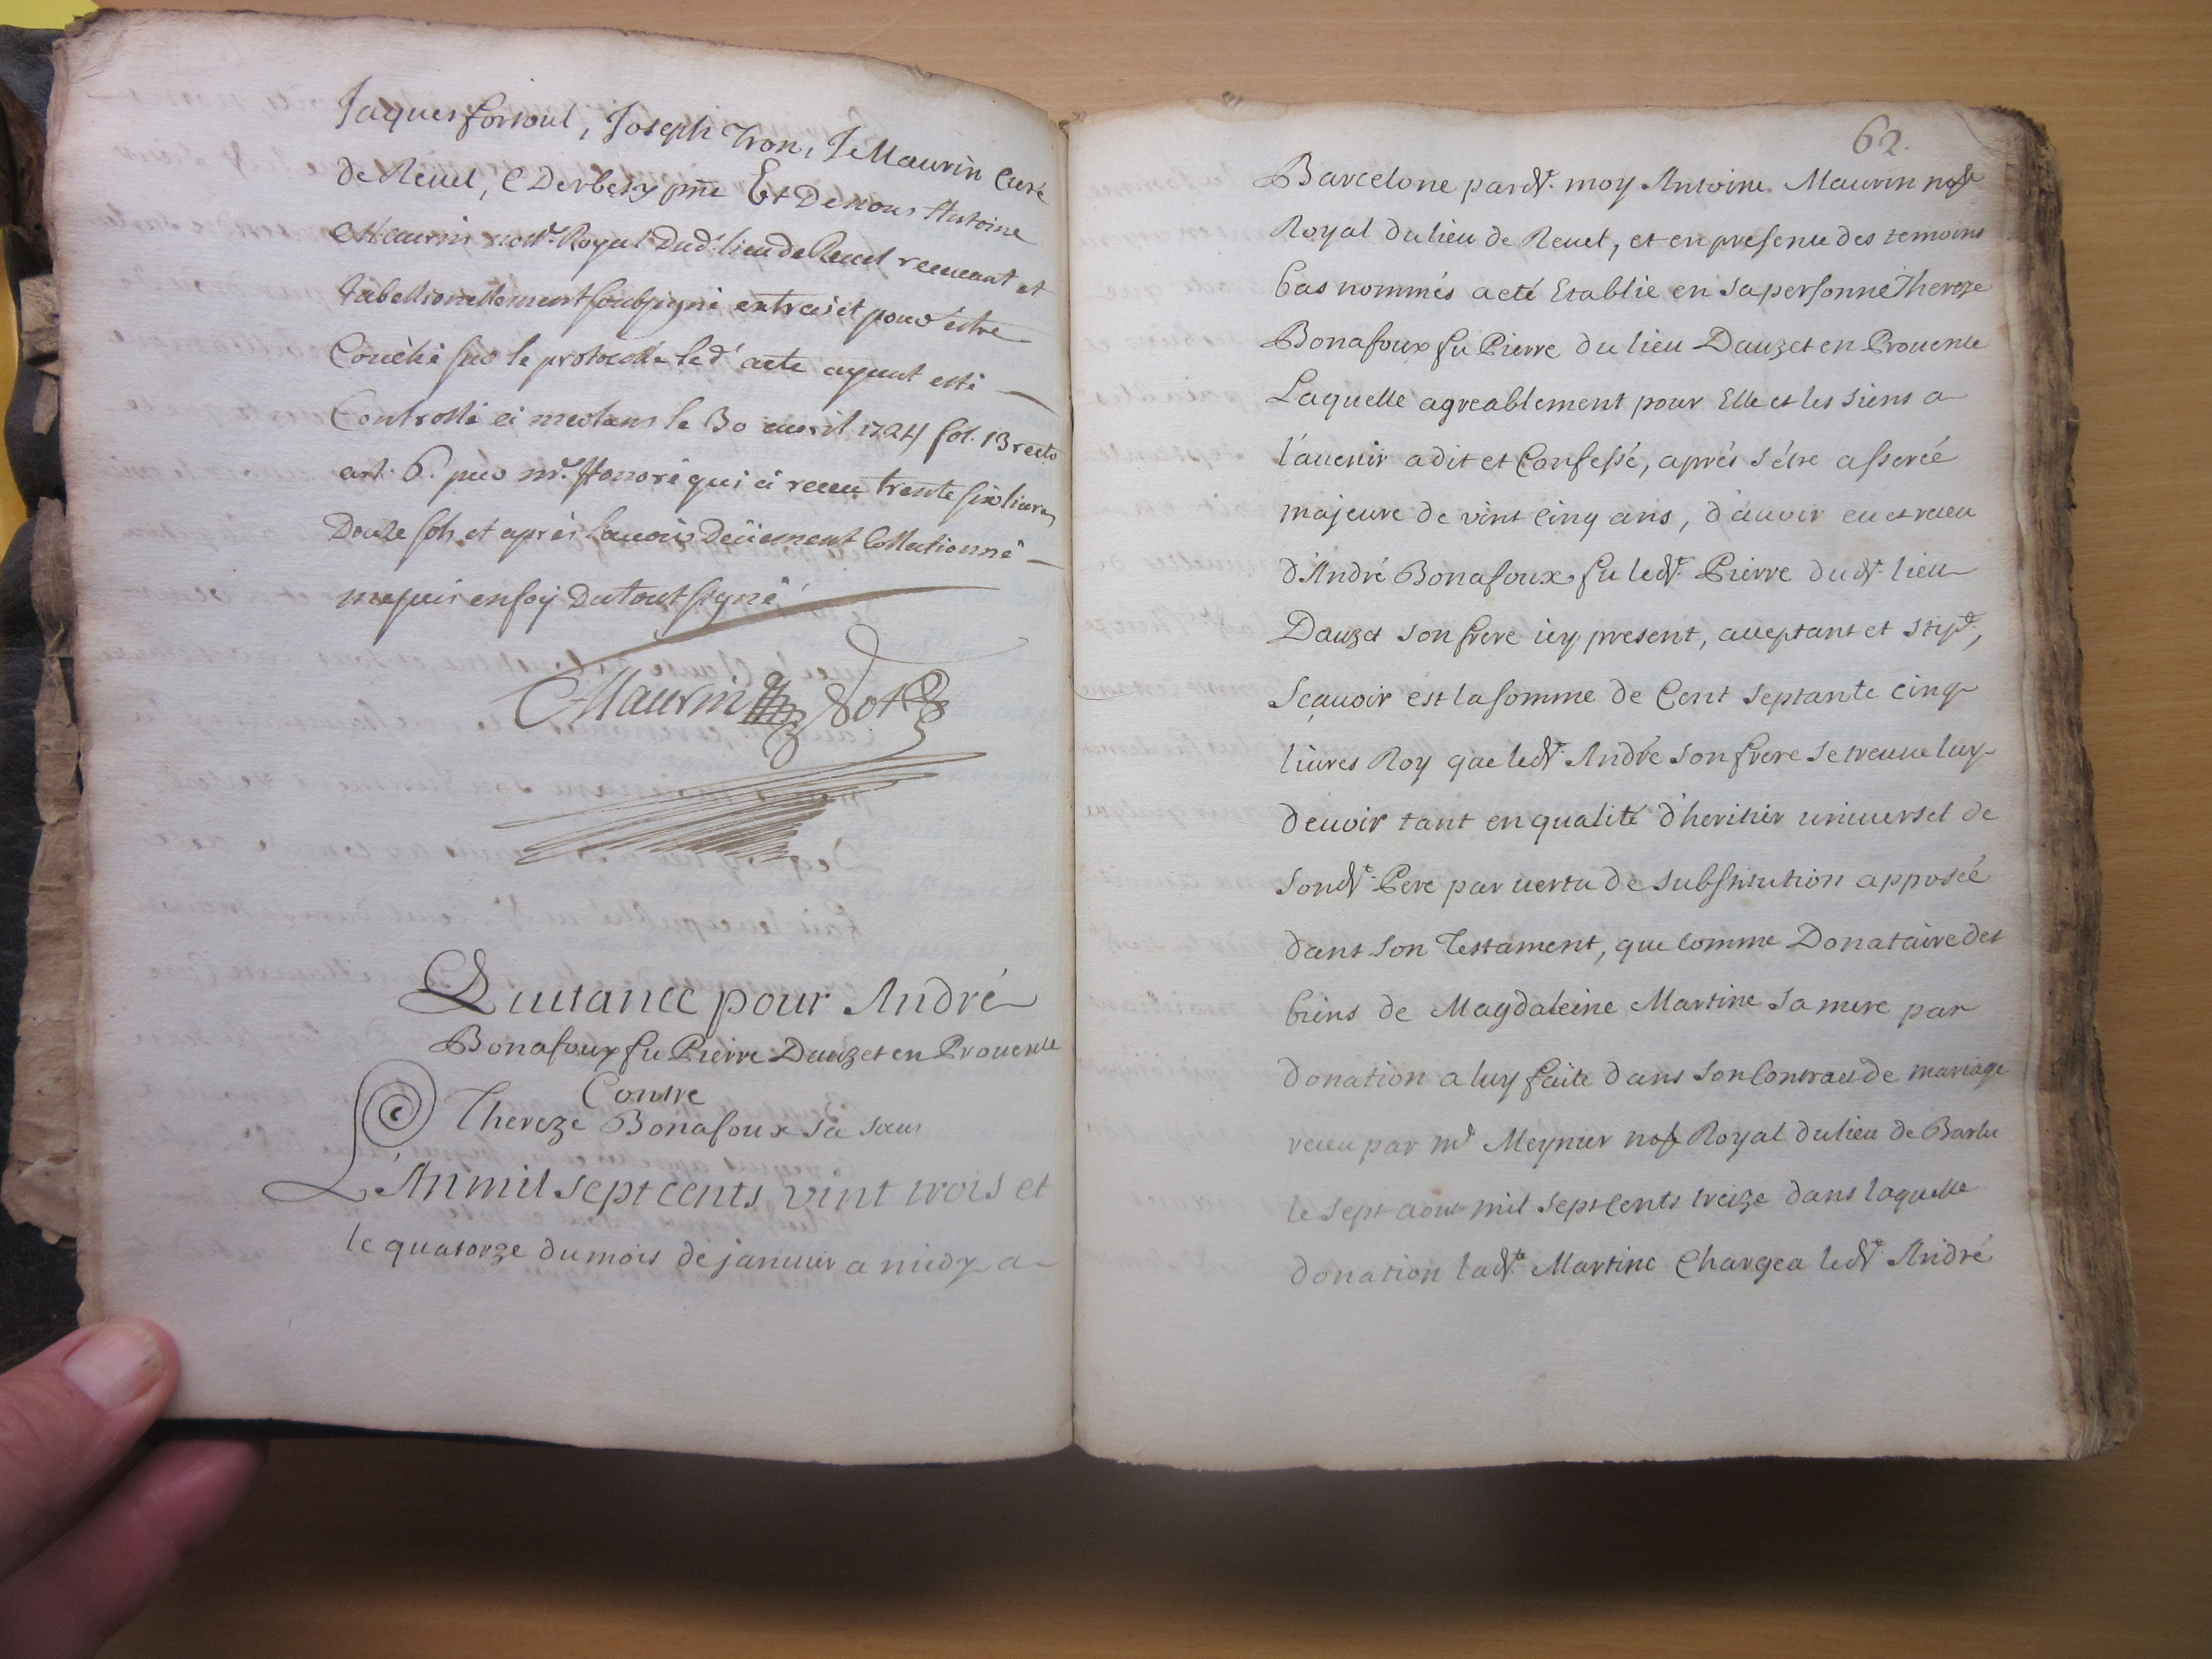 Jaques forsoul, Joseph Tron, J Maurin Curé
de Reuel, C Derbesy pñt Et De nous Antoine
Maurin nott.e Royal Dud.t lieu de Reuel receuant et
tabellionellement soubsigné extrait pour estre
Couché sur le protocolle led.t acte ayant esté
Controllé a meolans le 30 auril 1724 fol. 13 recto
art. 6. par m.r Honoré qui a receu trente six liures
Douze sols et aprés l'auoir Deüement Collationné
me suis en foy Du tout signé
Maurin Not.re
Quitance pour André
Bonafoux fu Pierre Dauzet en Prouence
Contre
Thereze Bonafoux sa sœur
L'An mil sept cents vint trois et
le quatorze du mois de januier a midy a
62.
Barcelone pard.t moy Antoine Maurin no.re
Royal du lieu de Reuel, et en presence des temoins
bas nommés a eté Etablie en sa personne Thereze
Bonafoux fu Pierre du lieu Dauzet en Prouence
Laquelle agreablement pour Elle et les siens a
l'auenir a dit et Confessé, aprés s'étre asserée
majeure de vint cinq ans, d'auoir eu et receu
d'André Bonafoux fu led.t Pierre dud.t lieu
Dauzet son frere icy present, acceptant et stip.t,
Sçauoir est la somme de Cent septante cinq
liures Roy que led.t André son frere se treuue luy
deuoir tant en qualité d'heritier uniuersel de
sond.t Pere par uertu de substitution apposée
dans son Testament, que comme Donataire des
biens de Magdaleine Martine sa mere par
donation a luy faite dans son Contract de mariage
receu par m.e Meynier no.re Royal du lieu de Barlu
le sept aout mil sept cents treize dans laquelle
donation lad.te Martine Chargea led.t André